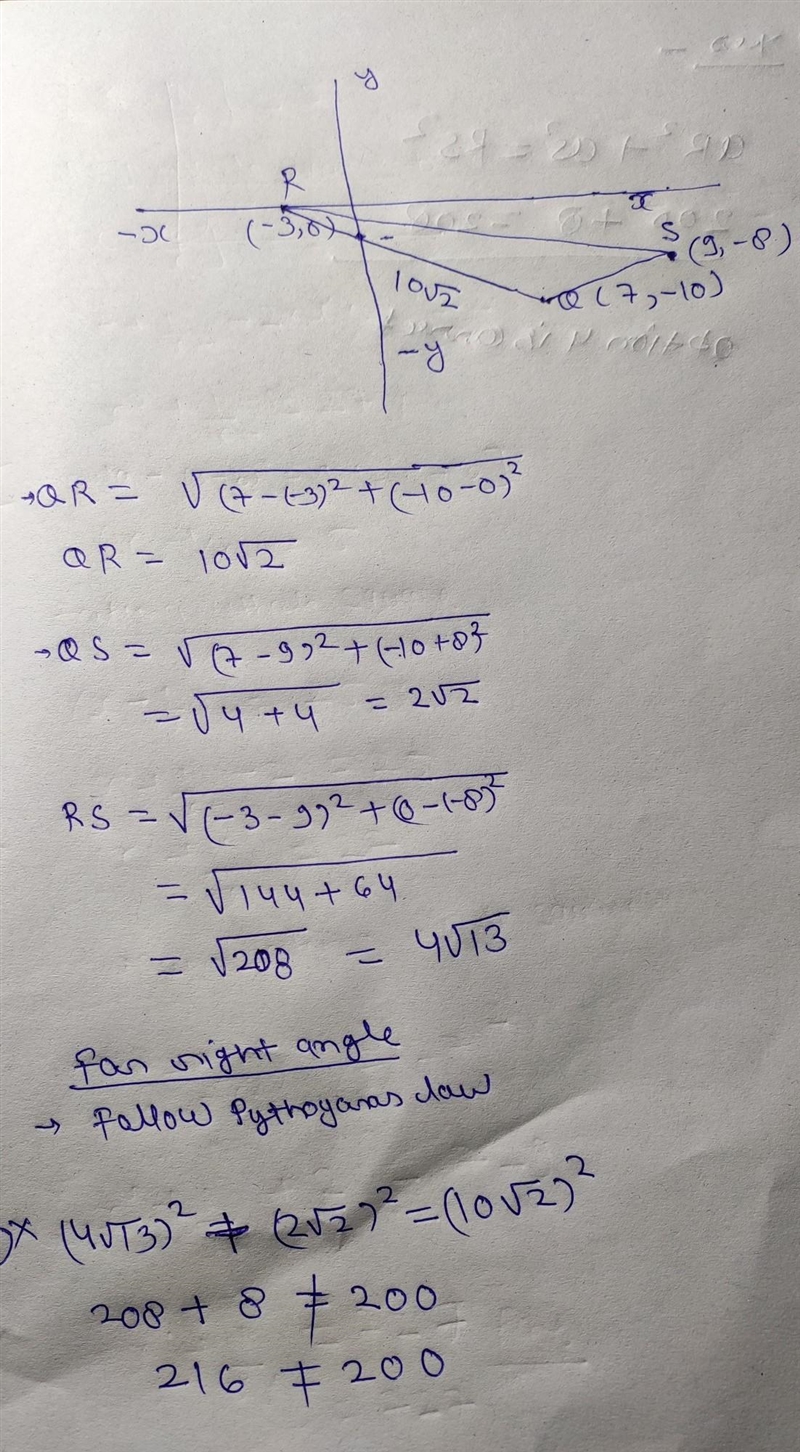 y
R
-x (-3,0) x
S (9,-8)
10√2 Q (7,-10)
-y
→QR = √(7-(-3)²+(-10-0)²
QR = 10√2
→QS = √(7-9)²+(-10+8)²
= √4+4 = 2√2
RS = √(-3-9)²+(0-(-8)²
= √144+64
= √208 = 4√13
for right angle
→ Follow Pythogaras law
× (4√13)² + (2√2)² = (10√2)²
208 + 8 ≠ 200
216 ≠ 200